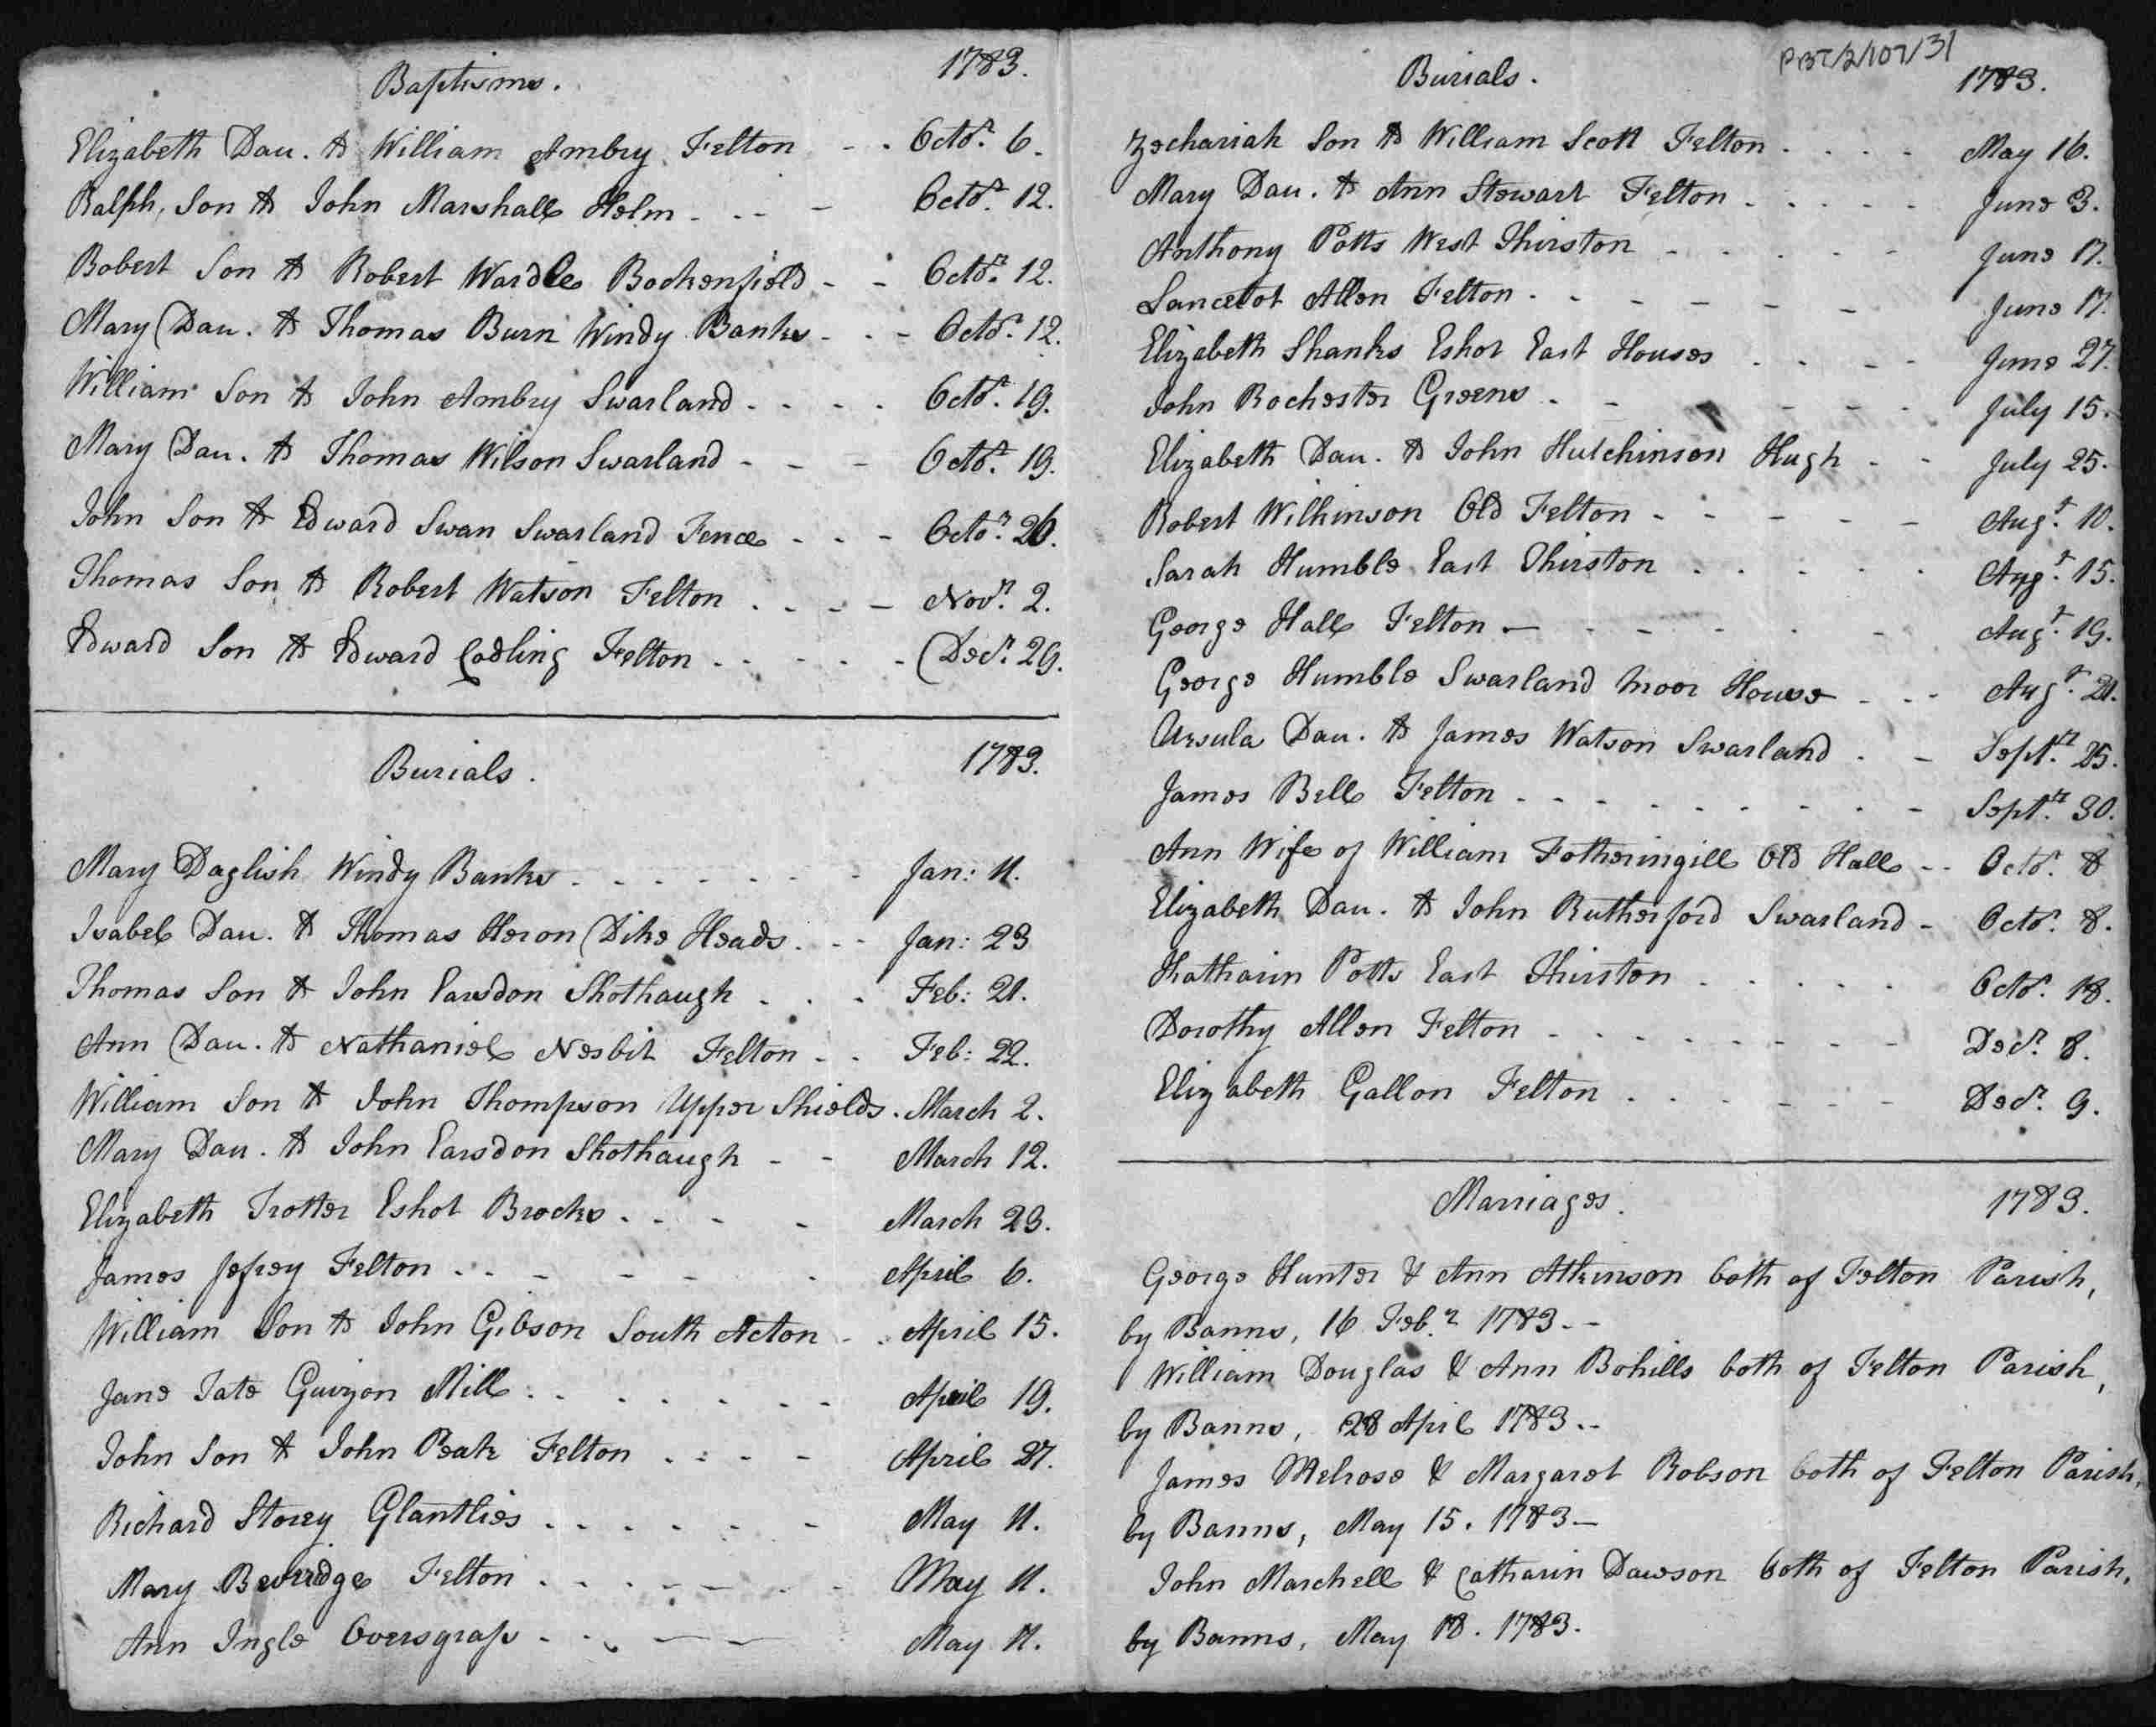 Baptisms. 1783.
Elizabeth Dau. to William Ambry Felton - - Octor. 6.
Ralph, Son to John Marshall Helm - - - - Octor. 12.
Robert Son to Robert Wardle Bockenfield - - Octor. 12.
Mary Dau. to Thomas Burn Windy Banks - - - Octor. 12.
William Son to John Ambry Swarland - - - - Octor. 19.
Mary Dau. to Thomas Wilson Swarland - - - Octor. 19.
John Son to Edward Swan Swarland Fence - - - Octor. 26.
Thomas Son to Robert Watson Felton - - - - Novr. 2.
Edward Son to Edward Codling Felton - - - - - Decr. 29.
Burials. 1783.
Mary Daglish Windy Banks - - - - - - - Jan: 11.
Isabel Dau. to Thomas Heron Dike Heads - - - Jan: 23
Thomas Son to John Earsdon Shothaugh - - - Feb: 21.
Ann Dau. to Nathaniel Nesbit Felton - - Feb: 22.
William Son to John Thompson Upper Shields. March 2.
Mary Dau. to John Earsdon Shothaugh - - March 12.
Elizabeth Trotter Eshot Brocks - - - - March 23.
James Jefrey Felton - - - - - - - April 6.
William Son to John Gibson South Acton - - April 15.
Jane Tate Guizon Mill - - - - - - - April 19.
John Son to John Peak Felton - - - - April 27.
Richard Storey Glantlies - - - - - - May 11.
Mary Beveridge Felton - - - - - - - - May 11.
Ann Ingle Oversgrass - - - - - May 11.
PBT/2/107/31
Burials. 1783.
Zechariah Son to William Scott Felton - - - - May 16.
Mary Dau. to Ann Stewart Felton - - - - - June 3.
Anthony Potts West Thirston - - - - - June 17.
Lancelot Allen Felton - - - - - - June 17.
Elizabeth Shanks Eshot East Houses - - - - June 27.
John Rochester Greens - - - - - - July 15.
Elizabeth Dau. to John Hutchinson Hugh - - July 25.
Robert Wilkinson Old Felton - - - - - Augt. 10.
Sarah Humble East Thirston - - - - - Augt. 15.
George Hall Felton - - - - - - - Augt. 19.
George Humble Swarland Moor House - - - Augt. 21.
Ursula Dau. to James Watson Swarland - - Septr. 25.
James Bell Felton - - - - - - - - - Septr. 30.
Ann Wife of William Fotheringill Old Hall - - Octor. 8
Elizabeth Dau. to John Rutherford Swarland - Octor. 8.
Katharin Potts East Thirston - - - - - Octor. 18.
Dorothy Allen Felton - - - - - - - - Decr. 8.
Elizabeth Gallon Felton - - - - - - Decr. 9.
Marriages. 1783.
George Hunter & Ann Atkinson both of Felton Parish,
by Banns, 16 Feb.r 1783. -
William Douglas & Ann Bohills both of Felton Parish,
by Banns, 28 April 1783. -
James Melrose & Margaret Robson both of Felton Parish,
by Banns, May 15. 1783 -
John Marchell & Catharin Dawson both of Felton Parish,
by Banns, May 18. 1783.